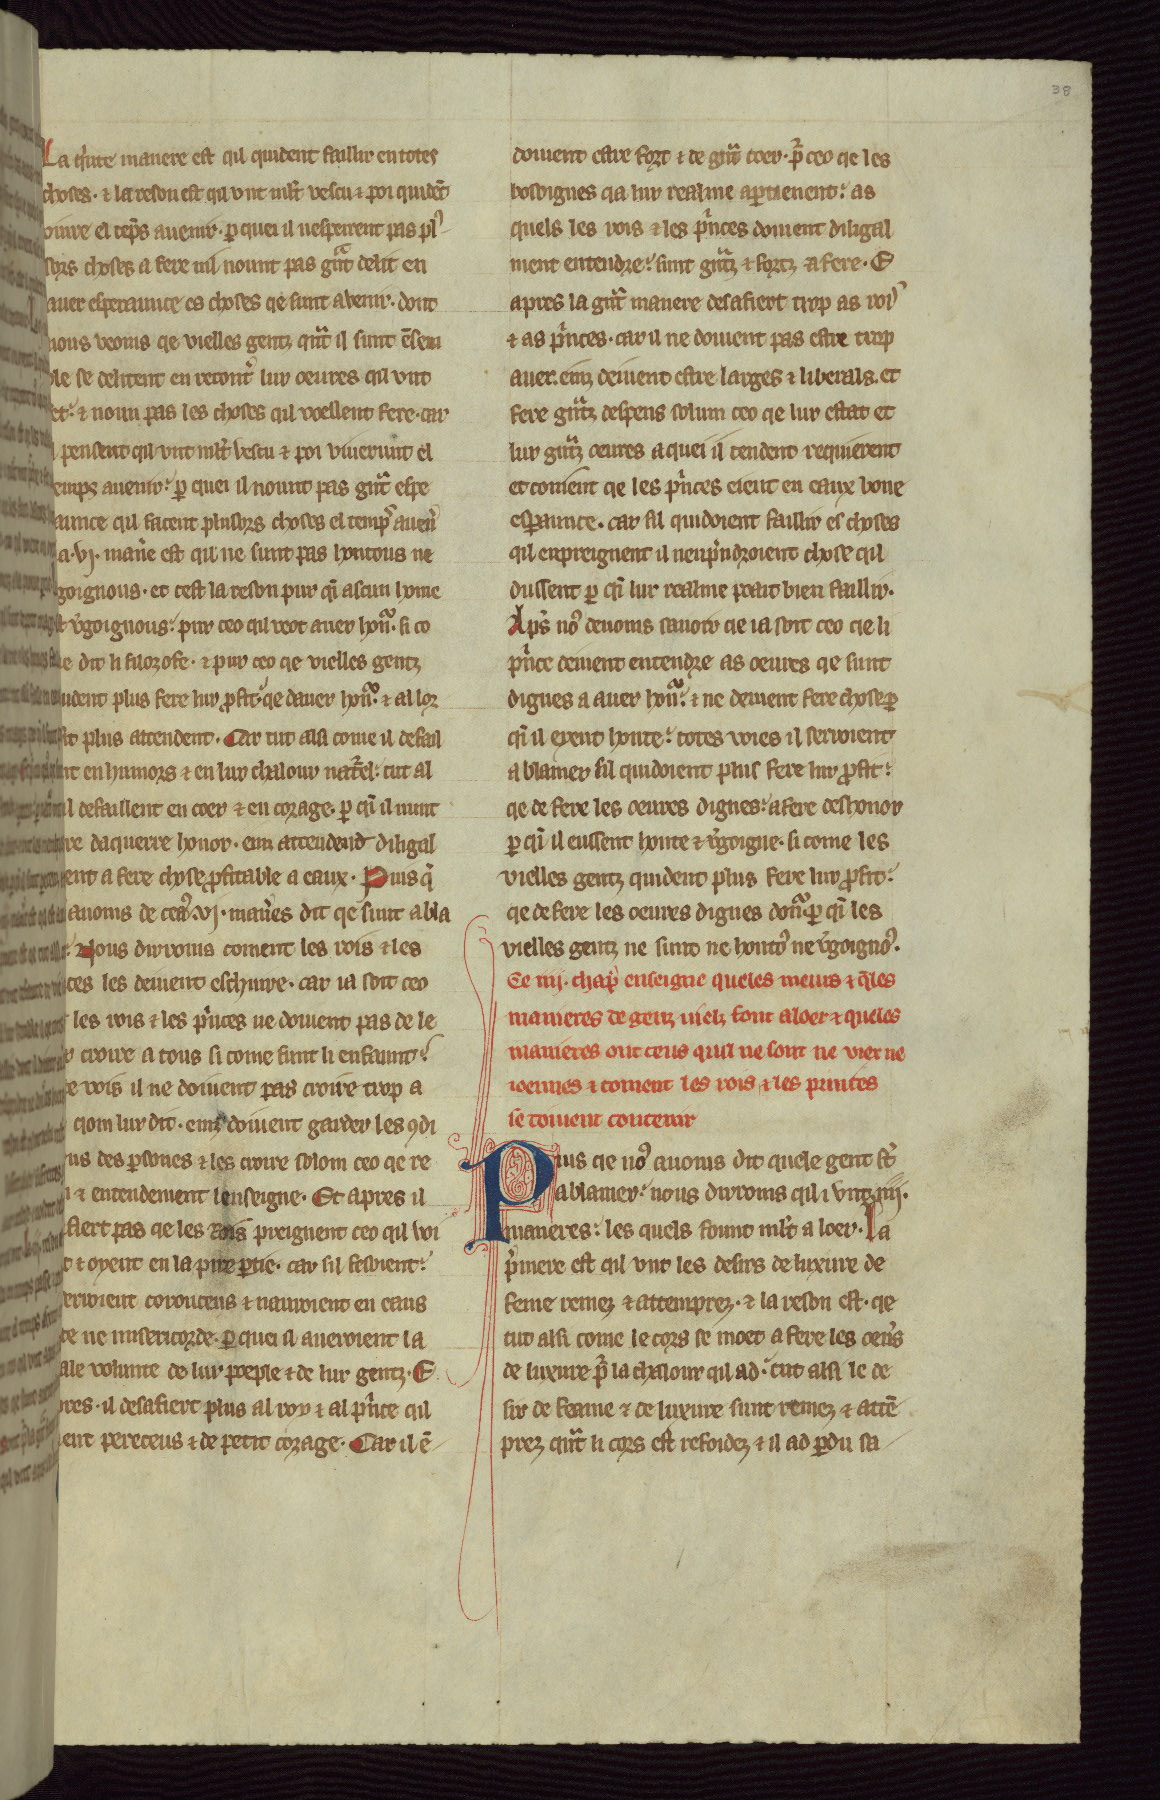 38
La q̃inte manere est qil quident faillir en totes
choses · ⁊ la reson est qil vnt mlt̃ vescu ⁊ poi quidẽt
viure el tẽps auenir · ꝑ quei il nesperent pas pl᷒
sors choses a fere nil nount pas gñt delit en
auer esperaunce es choses qe sunt a venir · dont
nous veoms qe vielles gentz qñt il sunt ẽsem
ble se delitent en recont̃ lur oeures qil vnt
et · ⁊ noun pas les choses qil voellent fere · car
pensent qil vnt mlt̃ vescu ⁊ poi viuerunt el
emps auenir · ꝑ quei il nount pas gñt espe
aunce qil facent plusors choses el temps auen᷒
a · vj · mañe est qil ne sunt pas hontous ne
goignous · et cest la reson pur qi ascun home
v̾goignous · pur ceo qil veot auer hoñ · si co
e dit li filozofe · ⁊ pur ceo qe vielles gentz
uident plus fere lur ꝓfit · qe dauer hoñ · ⁊ al lor
fit plus attendent · Car tut alsi come il defail
nt en humors ⁊ en lur chalour nat̃el · tut al
il defaillent en coer ⁊ en corage · ꝑ qi il nunt
re daquerre honor · einz attendend diligal
ent a fere chose ꝓfitable a eaux · Puis q̃
auoms de ces · vj · mañes dit qe sunt a bla
· Nous dirroms coment les rois ⁊ les
ces les deiuent eschiure · car ia soit ceo
les rois ⁊ les p̃nces ne doiuent pas de le
croire a tous si come funt li enfaunt ·
e rois il ne doiuent pas croire trop a
qom lur dit · einz doiuent garder les ꝯdi
ns des ꝑsones ⁊ les croire solom ceo qe re
⁊ entendement lenseigne · Et apres il
fiert pas qe les rois preignent ceo qil voi
t ⁊ oyent en la pire ꝑtie · car sil fesoient ·
erroient coroucens ⁊ nauroient en eaus
te ne misericorde · ꝑ quei il aueroient la
ale volunte de lur poeple ⁊ de lur gentz · E
res · il desafiert plus al roy ⁊ al p̃nce qil
ent pereceus ⁊ de petit corage · Car il ẽ
doiuent estre fort ⁊ de gñt coer · p̃ ceo qe les
bosoignes qa lur realme aꝑtienent · as
quels les rois ⁊ les p̃nces doiuent diligal
ment entendre · sunt gñtz ⁊ fortz a fere · E
apres la q̃rt manere desafiert trop as rois
⁊ as p̃nces · car il ne doiuent pas estre trop
auer · einz deiuent estre larges ⁊ liberals · et
fere gñtz despens solum ceo qe lur estat et
lur gñtz oeures a quei il tendent requierent
et conient qe les p̃nces eient en eaux bone
esꝑaunce · car sil quidoient faillir es choses
qil enpreignent il nenp̃ndroient chose qil
dussent ꝑ qi lur realme porait bien faillir ·
Aps̃ no᷒ deuoms sauoir qe ia soit ceo qe li
p̃nce deiuent entendre as oeures qe sunt
dignes a auer hoñ · ⁊ ne deiuent fere chose ꝑ
qi il eyent honte · totes voies il serroient
a blamer sil quidoient plus fere lur ꝓfit ·
qe de fere les oeures dignes · a fere deshonor
ꝑ qi il eussent honte ⁊ v̾goigne · si come les
vielles gentz quident plus fere lur ꝓfit ·
qe de fere les oeures dignes doñ · ꝑ qi les
vielles gentz ne sunt ne honto᷒ ne v̾goigno᷒ ·
Ce iiij · chap̃ enseigne queles meurs ⁊ q̃les
manieres de gentz uielz font a loer ⁊ queles
manieres ont ceus quil ne sont ne vier ne
ioennes ⁊ coment les rois ⁊ les princes
se doiuent contenir
Puis qe no᷒ auoms dit quele gent sũt
a blamer · nous dirroms qil i vnt · iiij ·
maneres · les quels sount mlt̃ a loer · La
p̃miere est qil vnt les desirs de luxure de
feme remez ⁊ attemprez · ⁊ la reson est · qe
tut alsi come le cors se moet a fere les oeũs
de luxure p̃ la chalour qil ad · tut alsi le de
sir de feame ⁊ de luxure sunt remez ⁊ attẽ
prez qñt li cors est refoidez ⁊ il ad ꝑdu sa